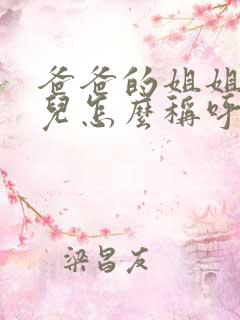 爸爸的姐姐
兒怎麼稱呼
梁昌友